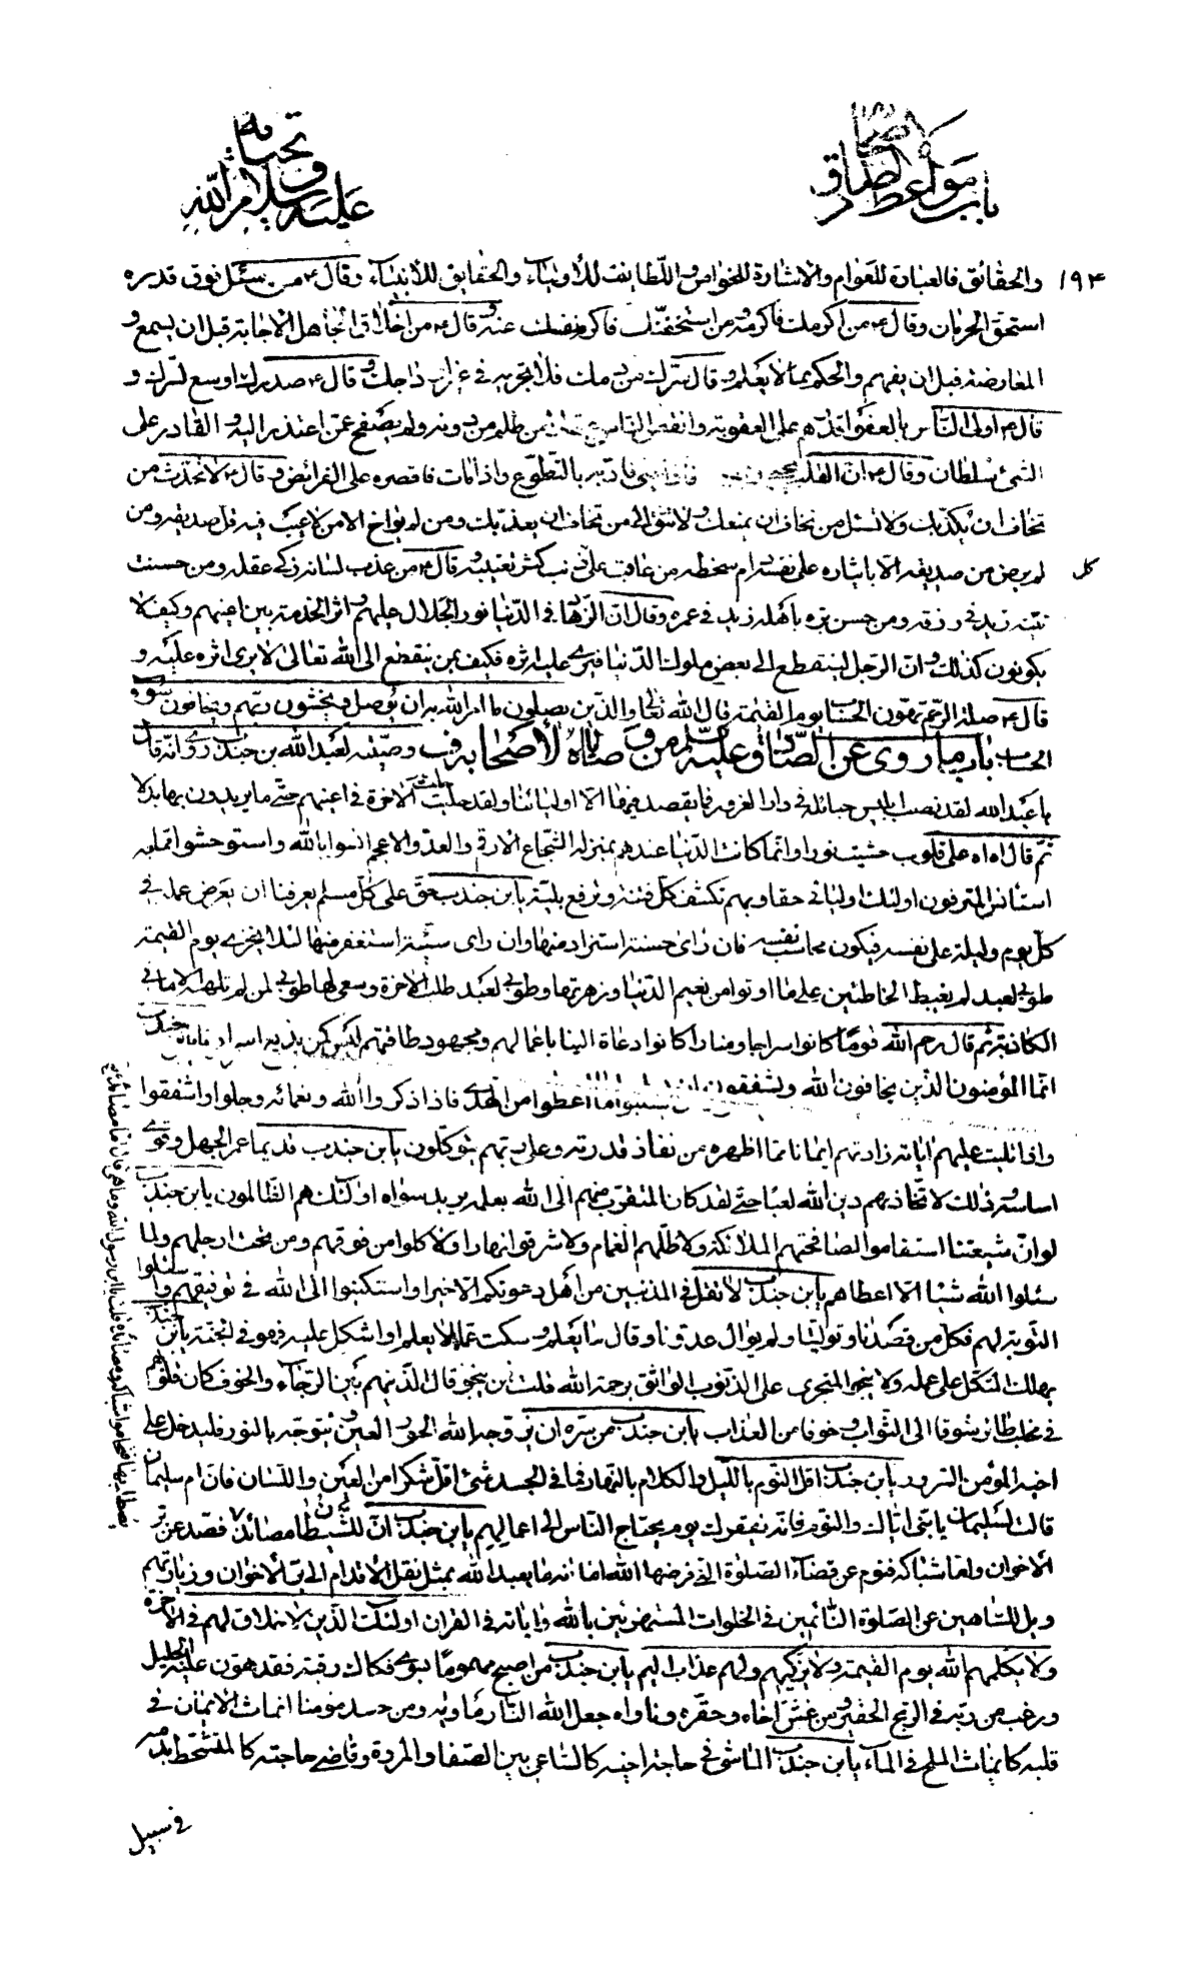 باب مواعظ الصادق
عليه سلام الله وتحياته
١٩٤
والحقائق فالعبادة للعوام والاشارة للخواص واللطايف للأولياء والحقايق للأنبياء وقال ع من سئل فوق قدره
استحق الحرمان وقال ع من اكرمك فاكرمه ومن استخفك فاكرم نفسك عنه وقال ع من اخلاق الجاهل الاجابة قبل ان يسمع و
المعارضة قبل ان يفهم والحكم بما لا يعلم وقال سرك من دمك فلا تجريه في غير اوداجك وقال ع صدرك اوسع لسرك و
قال ع اولى الناس بالعفو اقدرهم على العقوبة وانقص الناس عقلا من ظلم من دونه ولم يصفح عمن اعتذر اليه والقادر على
الشئ سلطان وقال ع ان القلب فادبه بالتطوع واذا مات فاقصره على الفرائض وقال ع لا تحدث من
تخاف ان يكذبك ولا تسئل من تخاف ان يمنعك ولا تثق الى من تخاف ان يعذبك ومن لم يواخ الا من لا عيب فيه قل صديقه ومن
لم يرض من صديقه الا بايثاره على نفسه دام سخطه ومن عاتب على ذنب كثر تعتبه وقال ع من عذب لسانه زكى عقله ومن حسنت
كل
نيته زيد في رزقه ومن حسن بره باهله زيد في عمره وقال ان الزهاد في الدنيا نور الجلال عليهم واثر الخدمة بين اعينهم وكيف لا
يكونون كذلك وان الرجل لينقطع الى بعض ملوك الدنيا فيرى عليه اثره فكيف بمن ينقطع الى الله تعالى لا يرى اثره عليه و
قال ع صلة الرحم تهون الحساب يوم القيمة قال الله تعالى والذين يصلون ما امر الله به ان يوصل ويخشون ربهم ويخافون سوء
الحساب باب ما روى عن الصادق عليه السلام من وصاياه لأصحابه ف وصيته لعبد الله بن جندب روى انه قال
يا عبد الله لقد نصب ابليس حبائله في دار الغرور فما يقصد فيها الا اوليائنا ولقد جلت الآخرة في اعينهم حتى ما يريدون بها بدلا
ثم قال اه اه على قلوب حشيت نورا وانما كانت الدنيا عندهم بمنزلة الشجاع الارقم والعدو الاعجم انسوا بالله واستوحشوا مما به
استانس المترفون اولئك اوليائى حقا وبهم تكشف كل فتنة وترفع بلية يا بن جندب حق على كل مسلم يعرفنا ان يعرض عمله في
كل يوم وليلة على نفسه فيكون محاسب نفسه فان راى حسنة استزاد منها وان راى سيئة استغفر منها لئلا يخزى يوم القيمة
طوبى لعبد لم يغبط الخاطئين على ما اوتوا من نعيم الدنيا وزهرتها وطوبى لعبد طلب الآخرة وسعى لها طوبى لمن لم تلهه الامانى
الكاذبة ثم قال رحم الله قوما كانوا سراجا ومنارا كانوا دعاة الينا باعمالهم ومجهود طاقتهم ليس كمن يذيع اسرارنا يا بن جندب
انما المؤمنون الذين يخافون الله ويشفقون ان يسلبوا ما اعطوا من الهدى فاذا ذكروا الله ونعمائه وجلوا واشفقوا
واذا تليت عليهم اياته زادتهم ايمانا مما اظهره من نفاذ قدرته وعلى ربهم يتوكلون يا بن جندب قديما عمر الجهل وقوى
اساسه وذلك لاتخاذهم دين الله لعبا حتى لقد كان المتقرب منهم الى الله بعلمه يريد سواه اولئك هم الظالمون يا بن جندب
لو ان شيعتنا استقاموا لصافحتهم الملائكة ولاظلهم الغمام ولاشرقوا نهارا ولاكلوا من فوقهم ومن تحت ارجلهم ولما
سئلوا الله شيئا الا اعطاهم يا بن جندب لا تقل في المذنبين من اهل دعوتكم الا خيرا واستكينوا الى الله في توفيقهم وسئلوا
التوبة لهم فكل من قصدنا وتولينا ولم يوال عدونا وقال ما يعلم وسكت عما لا يعلم او اشكل عليه فهو في الجنة يا بن جندب
يهلك المتكل على عمله ولا ينجو المتجرى على الذنوب الواثق برحمة الله قلت فمن ينجو قال الذين هم بين الرجاء والخوف كان قلوبهم
في مخلب طائر شوقا الى الثواب وخوفا من العذاب يا بن جندب من سره ان يزوجه الله الحور العين ويتوجه بالنور فليدخل على
اخيه المؤمن السرور يا بن جندب اقل النوم بالليل والكلام بالنهار فما في الجسد شئ اقل شكرا من العين واللسان فان ام سليمان
قالت لسليمان يا بنى اياك والنوم فانه يفقرك يوم يحتاج الناس الى اعمالهم يا بن جندب ان للشيطان مصائد فصد عن بر
الاخوان واما شباكه فنوم عن قضاء الصلوة التى فرضها الله اما انه ما يعبد الله بمثل نقل الاقدام الى بر الاخوان وزيارتهم
ويل للساهين عن الصلوة النائمين في الخلوات المستهزئين بالله واياته في القران اولئك الذين لا خلاق لهم في الآخرة
ولا يكلمهم الله يوم القيمة ولا يزكيهم ولهم عذاب اليم يا بن جندب من اصبح مهموما سوى فكاك رقبته فقد هون عليه الجليل
ورغب من ربه في الربح الحقير ومن غش اخاه وحقره وناواه جعل الله النار ماواه ومن حسد مؤمنا انماث الايمان في
قلبه كما ينماث الملح في الماء يا بن جندب الماشى في حاجة اخيه كالساعى بين الصفا والمروة وقاضى حاجته كالمتشحط بدمه
في سبيل
يصطاد بها فتحاموا شباكه ومصائده قلت يا بن رسول الله وما هى قال اما مصائده